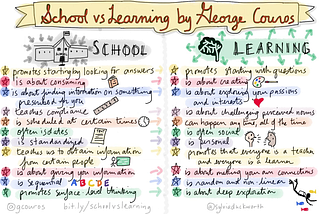 School vs Learning by George Couros
SCHOOL
promotes starting by looking for answers
is about consuming
is about finding information on something
prescribed for you
teaches compliance
is scheduled at certain times
often isolates
is standardized
teaches us to obtain information
from certain people
is about giving you information
is sequential A B C D E
promotes surface-level thinking
@gcouros bit.ly/schoolvslearning
LEARNING
promotes starting with questions
is about creating
is about exploring your passions
and interests
is about challenging perceived norms
can happen any time, all the time
is often social
is personal
promotes that everyone is a teacher
and everyone is a learner
is about making your own connections
is random and non-linear
is about deep exploration
@sylviaduckworth